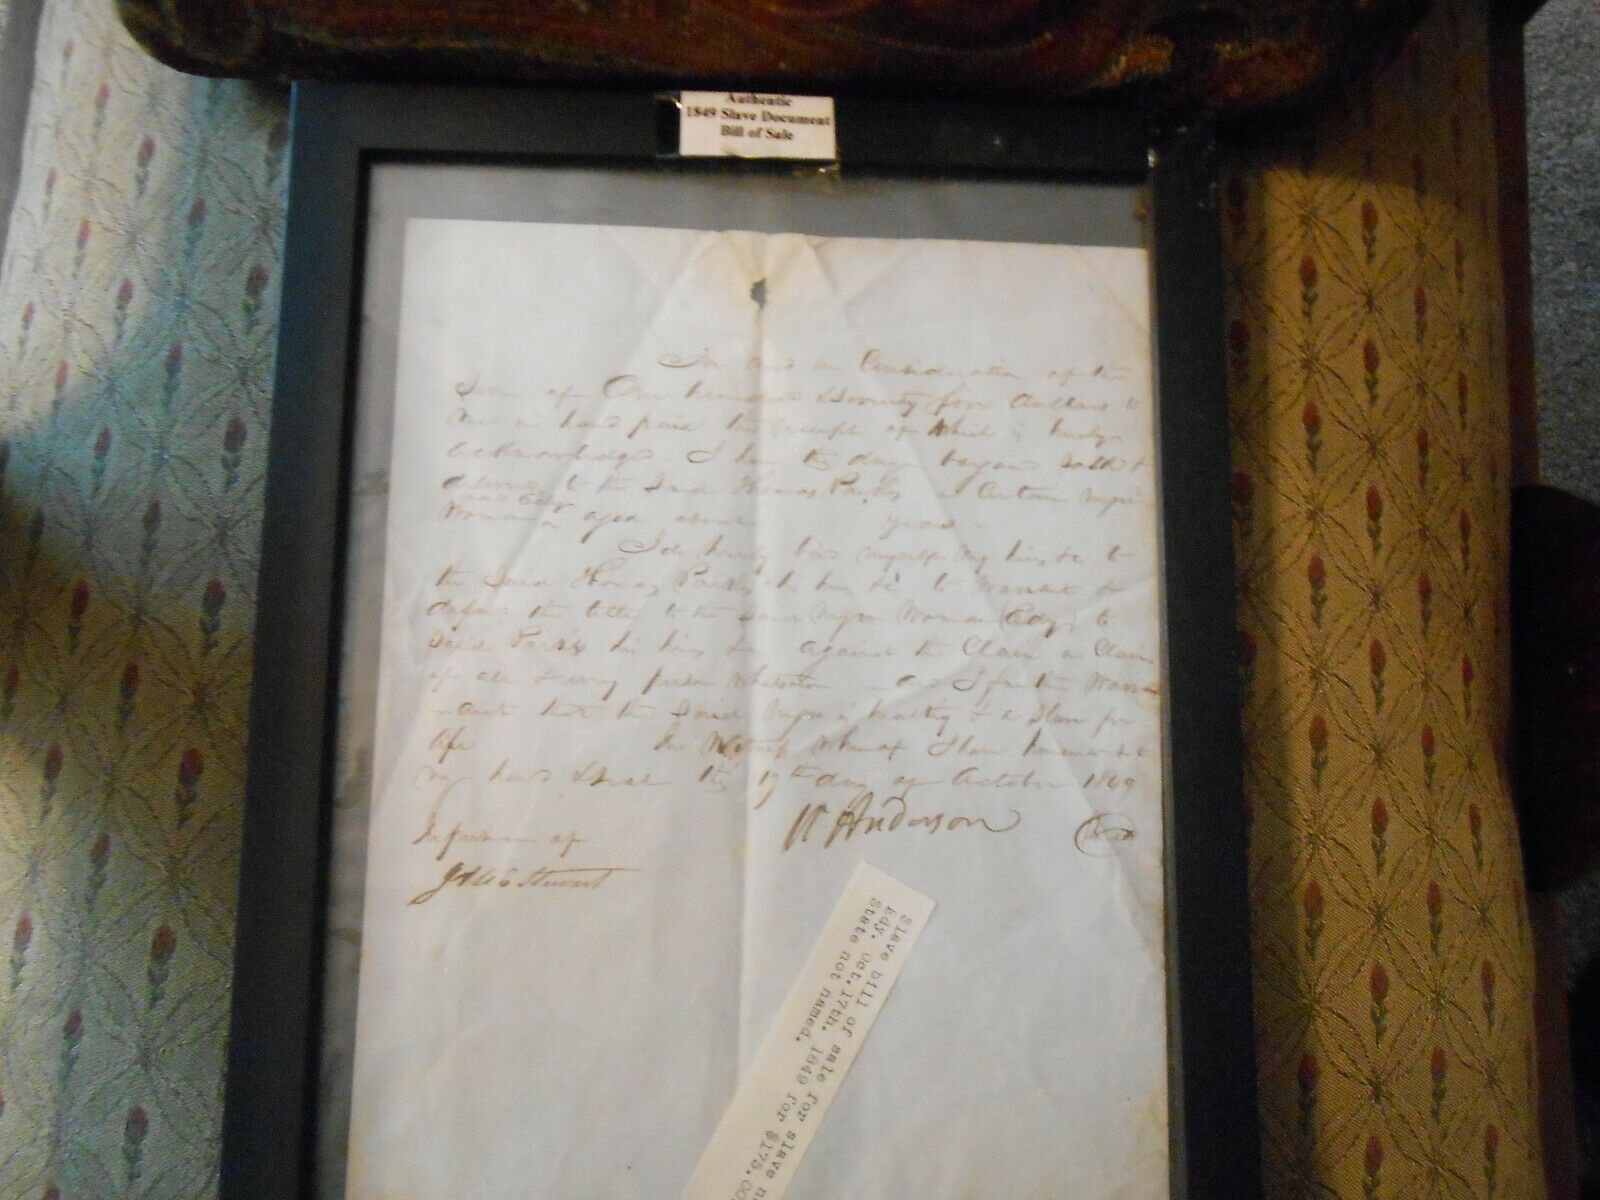 Authentic
1849 Slave Document
Bill of Sale
For and in Consideration of the
Sum of One hundred & Seventy five dollars to
me in hand paid the receipt of which is hereby
acknowledged. I have this day bargained sold &
delivered to the Said Thomas Parks a Certain Negro
Woman aged about years
I do hereby bind myself my heirs &c to
the Said Thomas Parks & his heirs &c to warrant &
defend the title to the Said Negro Woman Edy to
Said Parks his heirs &c against the Claim or Claims
of all & every person whatsoever and I further Warra
ant that the Said Negro is healthy & a Slave for
life In Witness Whereof I have hereunto set
my hand & Seal this 17th day of October 1849
Anderson
In presence of
Stewart
Slave bill of sale for slave n
Edy. Oct. 17th. 1849 for $175.00
State not named.